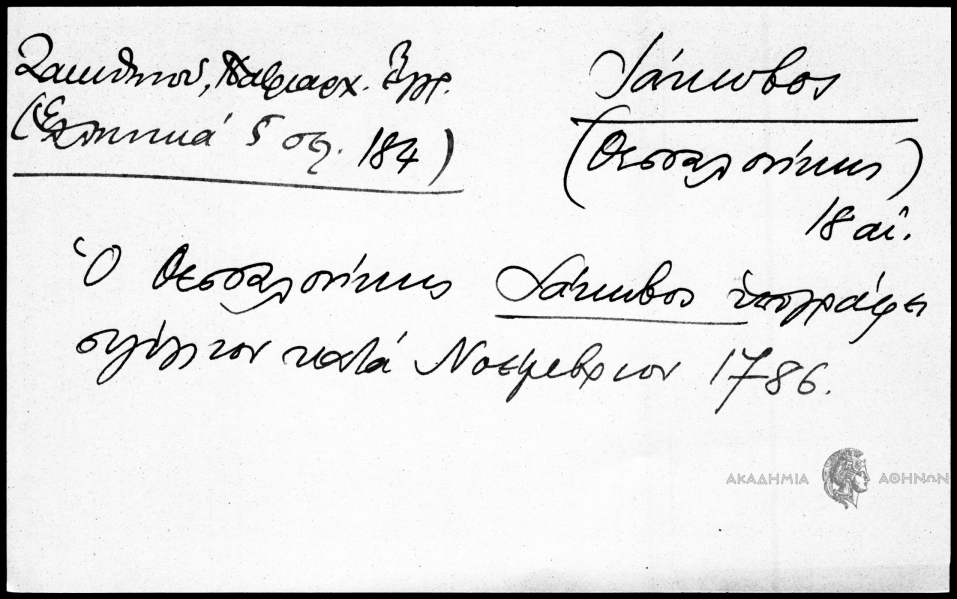 Ζακυθηνού, Πατριαρχ. Ἔγγρ.
(Ἑλληνικά 5 σελ. 184)
Ἰάκωβος
(Θεσσαλονίκης)
18 αἰ.
Ὁ Θεσσαλονίκης Ἰάκωβος ὑπογράφει
σιγίλλιον κατά Νοέμβριον 1786.
ΑΚΑΔΗΜΙΑ ΑΘΗΝΩΝ